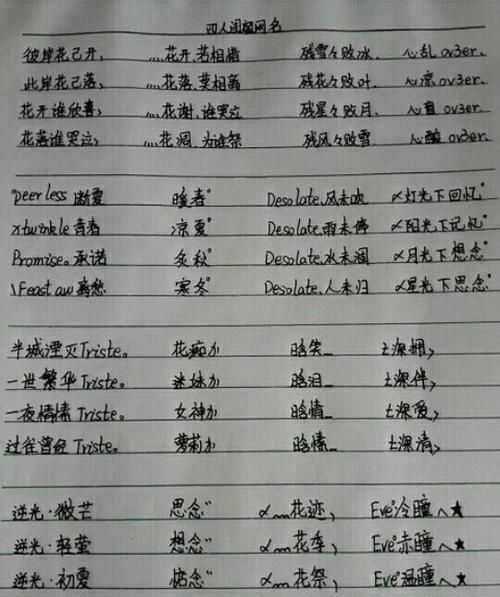 四人闺蜜网名
彼岸花已开, ....花开、若相惜 残雪々败冰. 心乱 ov3er.
此岸花已落, ....花落、莫相离 残花々败叶. 心凉 ov3er.
花开谁欣喜, ....花谢、谁哭泣 残星々败月. 心 ov3er.
花落谁哭泣, ....花凋、为谁祭 残风々败雪 心酸 ov3er.
"peerless 断夏 暖春° Desolate、风未吹 ㄨ灯光下回忆°
xtwinkle 青春 凉夏° Desolate、雨未停 ㄨ阳光下记忆°
Promise。承诺 冬秋° Desolate、水未涸 ㄨ月光下想念°
\Feast aw 离愁 寒冬° Desolate、人未归 ㄨ星光下思念°
半城湮灭Triste。 花痴か 晗笑_ 士深拥,
一世繁华Triste。 迷妹か 晗泪_ 士深伴,
一夜情愫Triste。 女神か 晗情_ 士深爱,
过往曾经 Triste。 萝莉か 晗愫_ 士深清,
逆光·微芒 思念" 花迹, Eve°冷瞳へ★
逆光·轻萤 想念" 花季, Eve°赤瞳へ★
逆光·初夏 惦念" 花祭, Eve°温瞳へ★